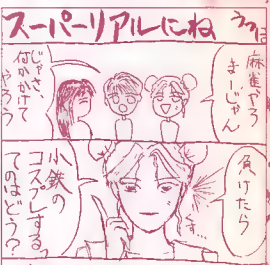 スーパーリアルにね
麻雀やろ
まーじゃん
じゃさ、
何かかけて
やろう
負けたら
くす…
小鉄の
コスプレする
てのはどう？